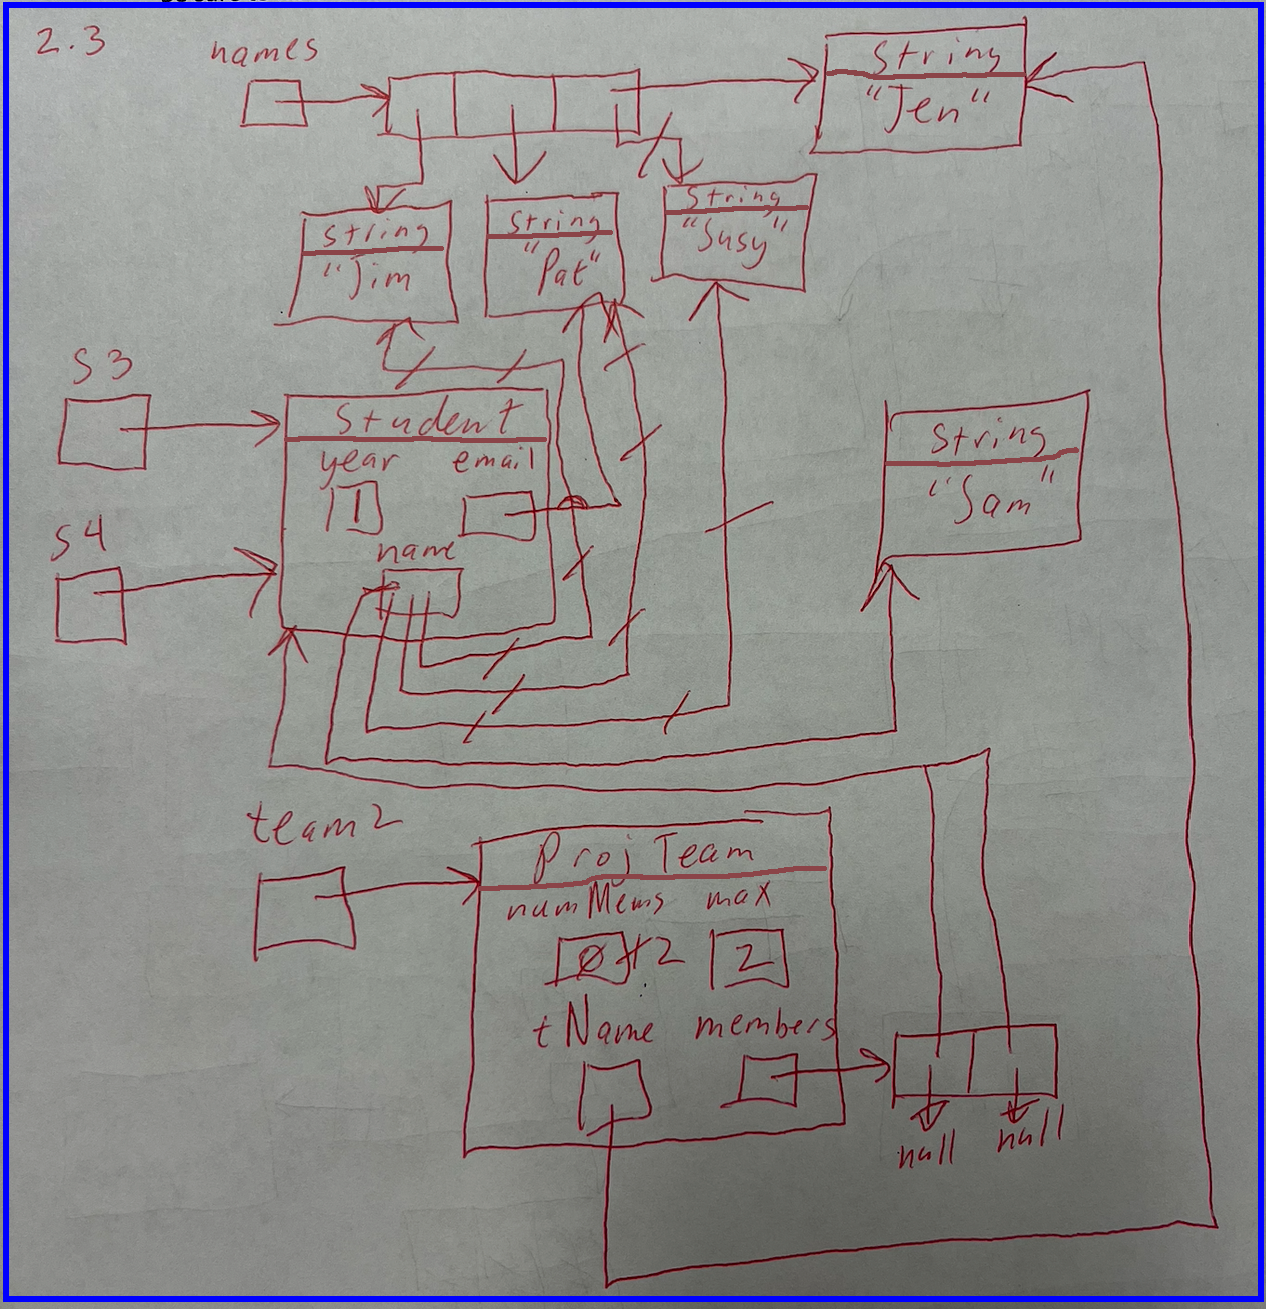 2.3
names
String
"Jen"
String
"Jim
String
"Pat"
String
"Susy"
S3
Student
year email
1
name
S4
String
"Sam"
team2
Proj Team
numMems max
0 2 2
tName members
null null